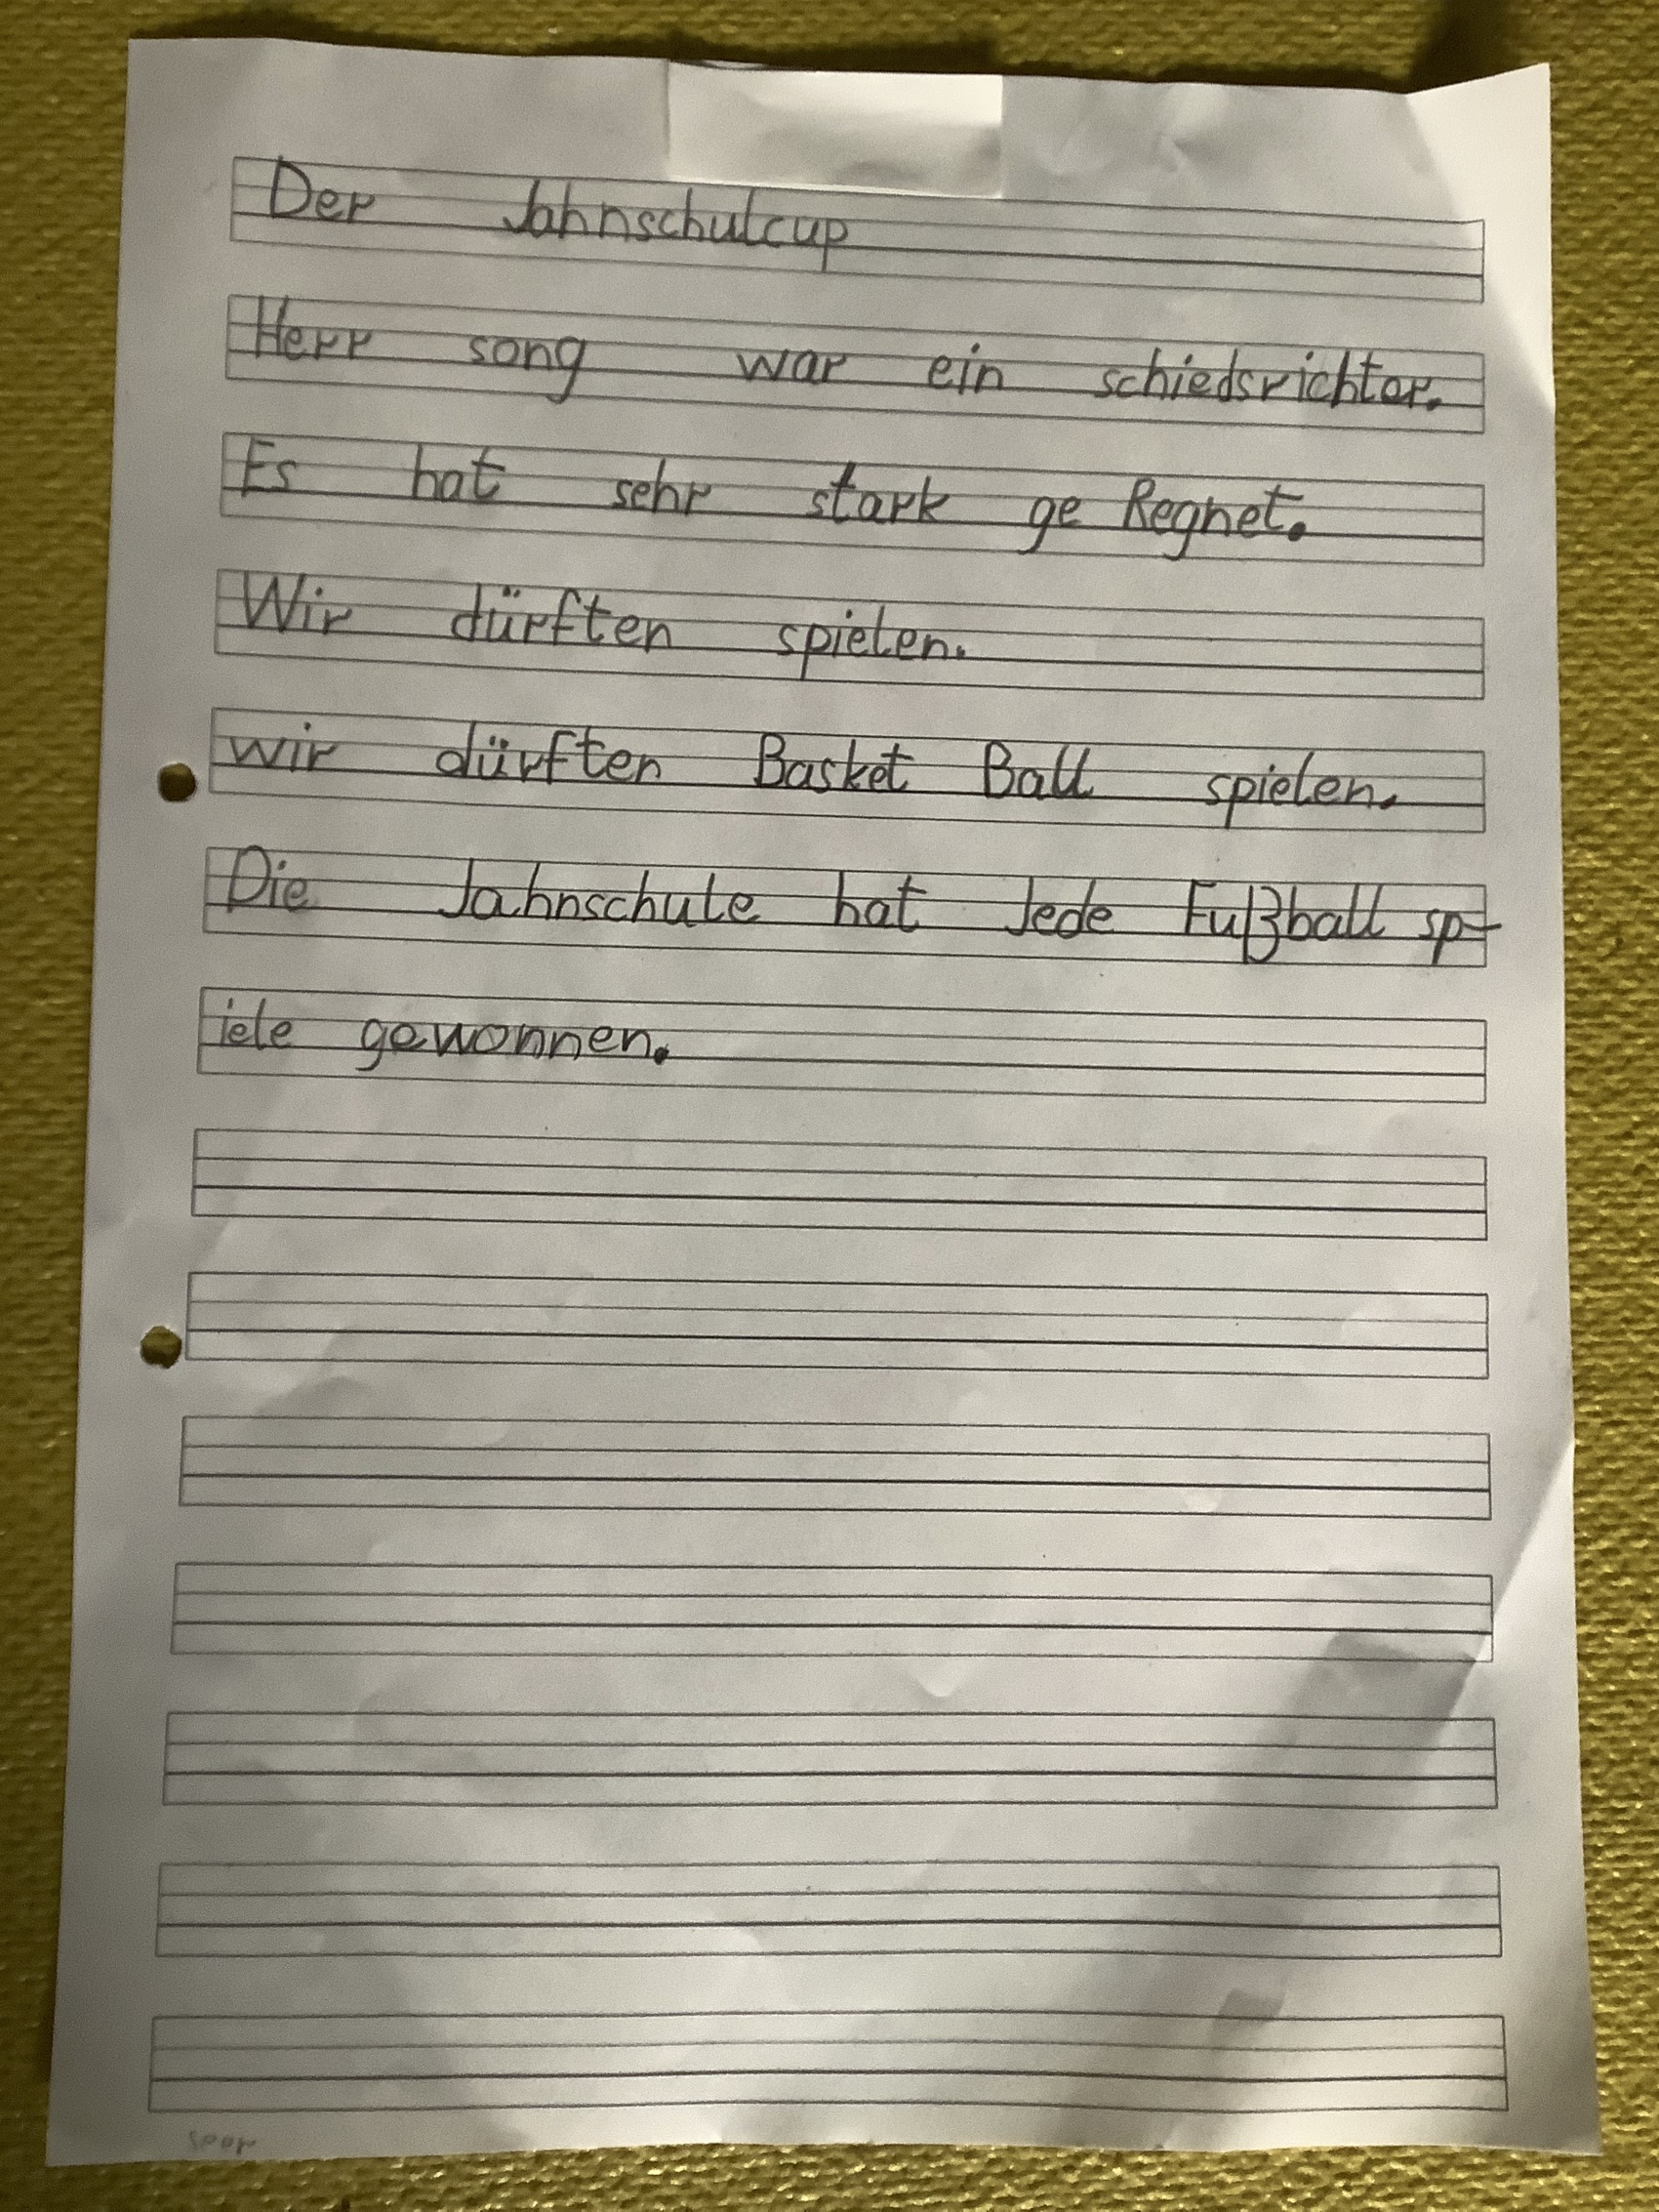 Der Jahnschulcup
Herr song war ein schiedsrichter.
Es hat sehr stark ge Regnet.
Wir dürften spielen.
wir dürften Basket Ball spielen.
Die Jahnschule hat Jede Fußball sp-
iele gewonnen.